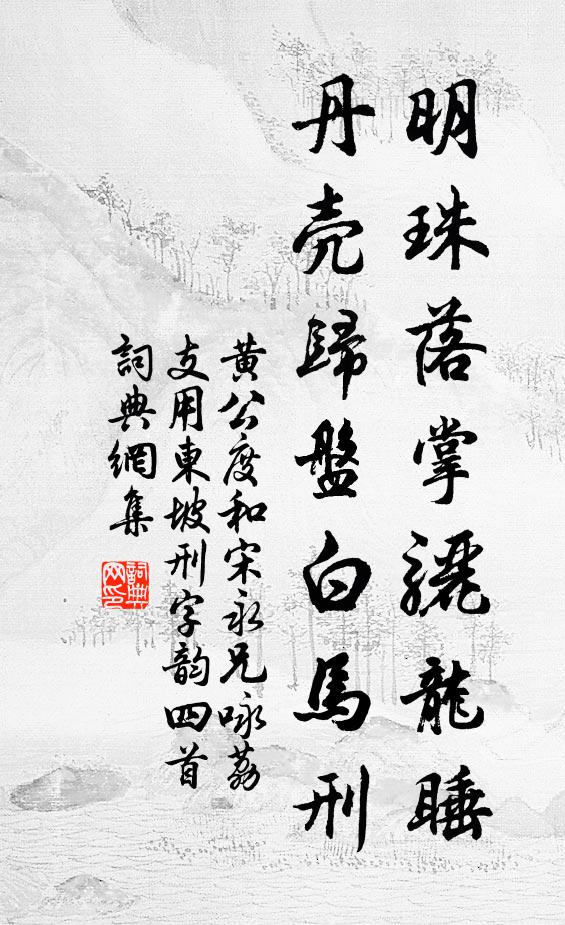 明珠落掌驪龍睡
丹壳歸盤白馬刑
黄公度和宋永兄咏荔
支用東坡刑字韵四首
詞典網集
詞典网印